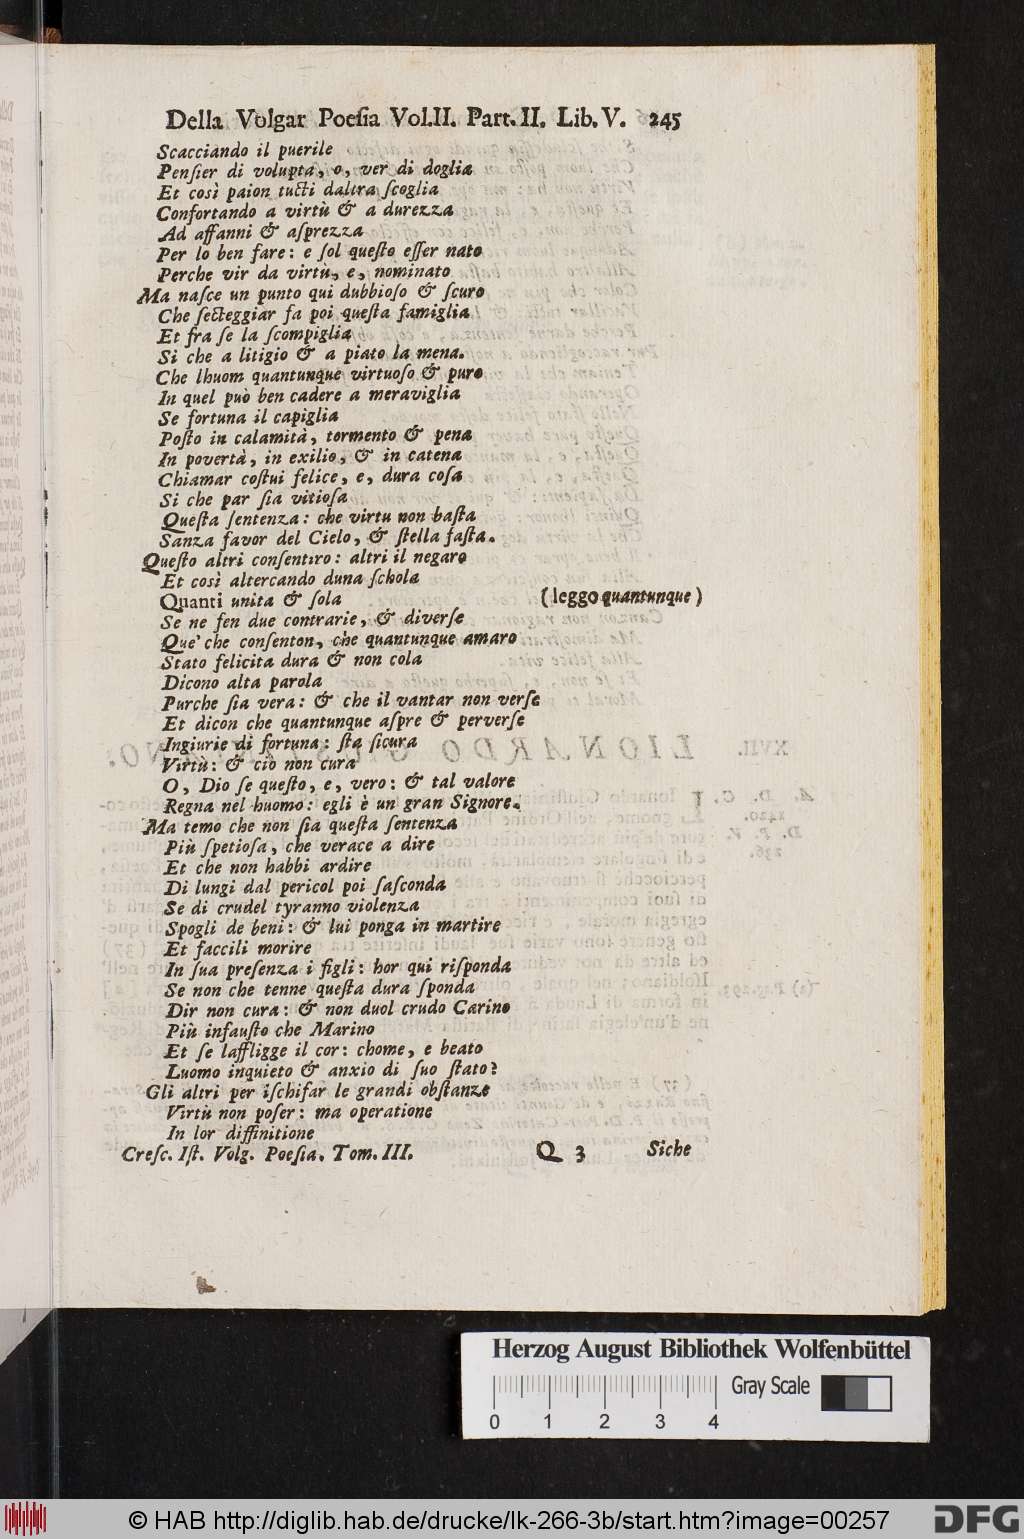 Della Volgar Poesia Vol.II. Part.II. Lib.V. 245
Scacciando il puerile
Pensier di volupta, o, ver di doglia
Et così paion tucti daltra scoglia
Confortando a virtù & a durezza
Ad affanni & asprezza
Per lo ben fare: e sol questo esser nato
Perche vir da virtù, e, nominato
Ma nasce un punto qui dubbioso & scuro
Che secteggiar fa poi questa famiglia
Et fra se la scompiglia
Si che a litigio & a piato la mena.
Che lhuom quantunque virtuoso & puro
In quel può ben cadere a meraviglia
Se fortuna il capiglia
Posto in calamità, tormento & pena
In povertà, in exilio, & in catena
Chiamar costui felice, e, dura cosa
Si che par sia vitiosa
Questa sentenza: che virtu non basta
Sanza favor del Cielo, & stella fasta.
Questo altri consentiro: altri il negaro
Et così altercando duna schola
Quanti unita & sola (leggo quantunque)
Se ne fen due contrarie, & diverse
Que' che consenton, che quantunque amaro
Stato felicita dura & non cola
Dicono alta parola
Purche sia vera: & che il vantar non verse
Et dicon che quantunque aspre & perverse
Ingiurie di fortuna: sta sicura
Virtù: & ciò non cura
O, Dio se questo, e, vero: & tal valore
Regna nel huomo: egli è un gran Signore.
Ma temo che non sia questa sentenza
Più spetiosa, che verace a dire
Et che non habbi ardire
Di lungi dal pericol poi sasconda
Se di crudel tyranno violenza
Spogli de beni: & lui ponga in martire
Et faccili morire
In sua presenza i figli: hor qui risponda
Se non che tenne questa dura sponda
Dir non cura: & non duol crudo Carino
Più infausto che Marino
Et se laffligge il cor: chome, e beato
Luomo inquieto & anxio di suo stato?
Gli altri per ischifar le grandi obstanze
Virtù non poser: ma operatione
In lor diffinitione
Cresc. Ist. Volg. Poesia. Tom. III. Q 3 Siche
Herzog August Bibliothek Wolfenbüttel
Gray Scale
0 1 2 3 4
© HAB http://diglib.hab.de/drucke/lk-266-3b/start.htm?image=00257
DFG